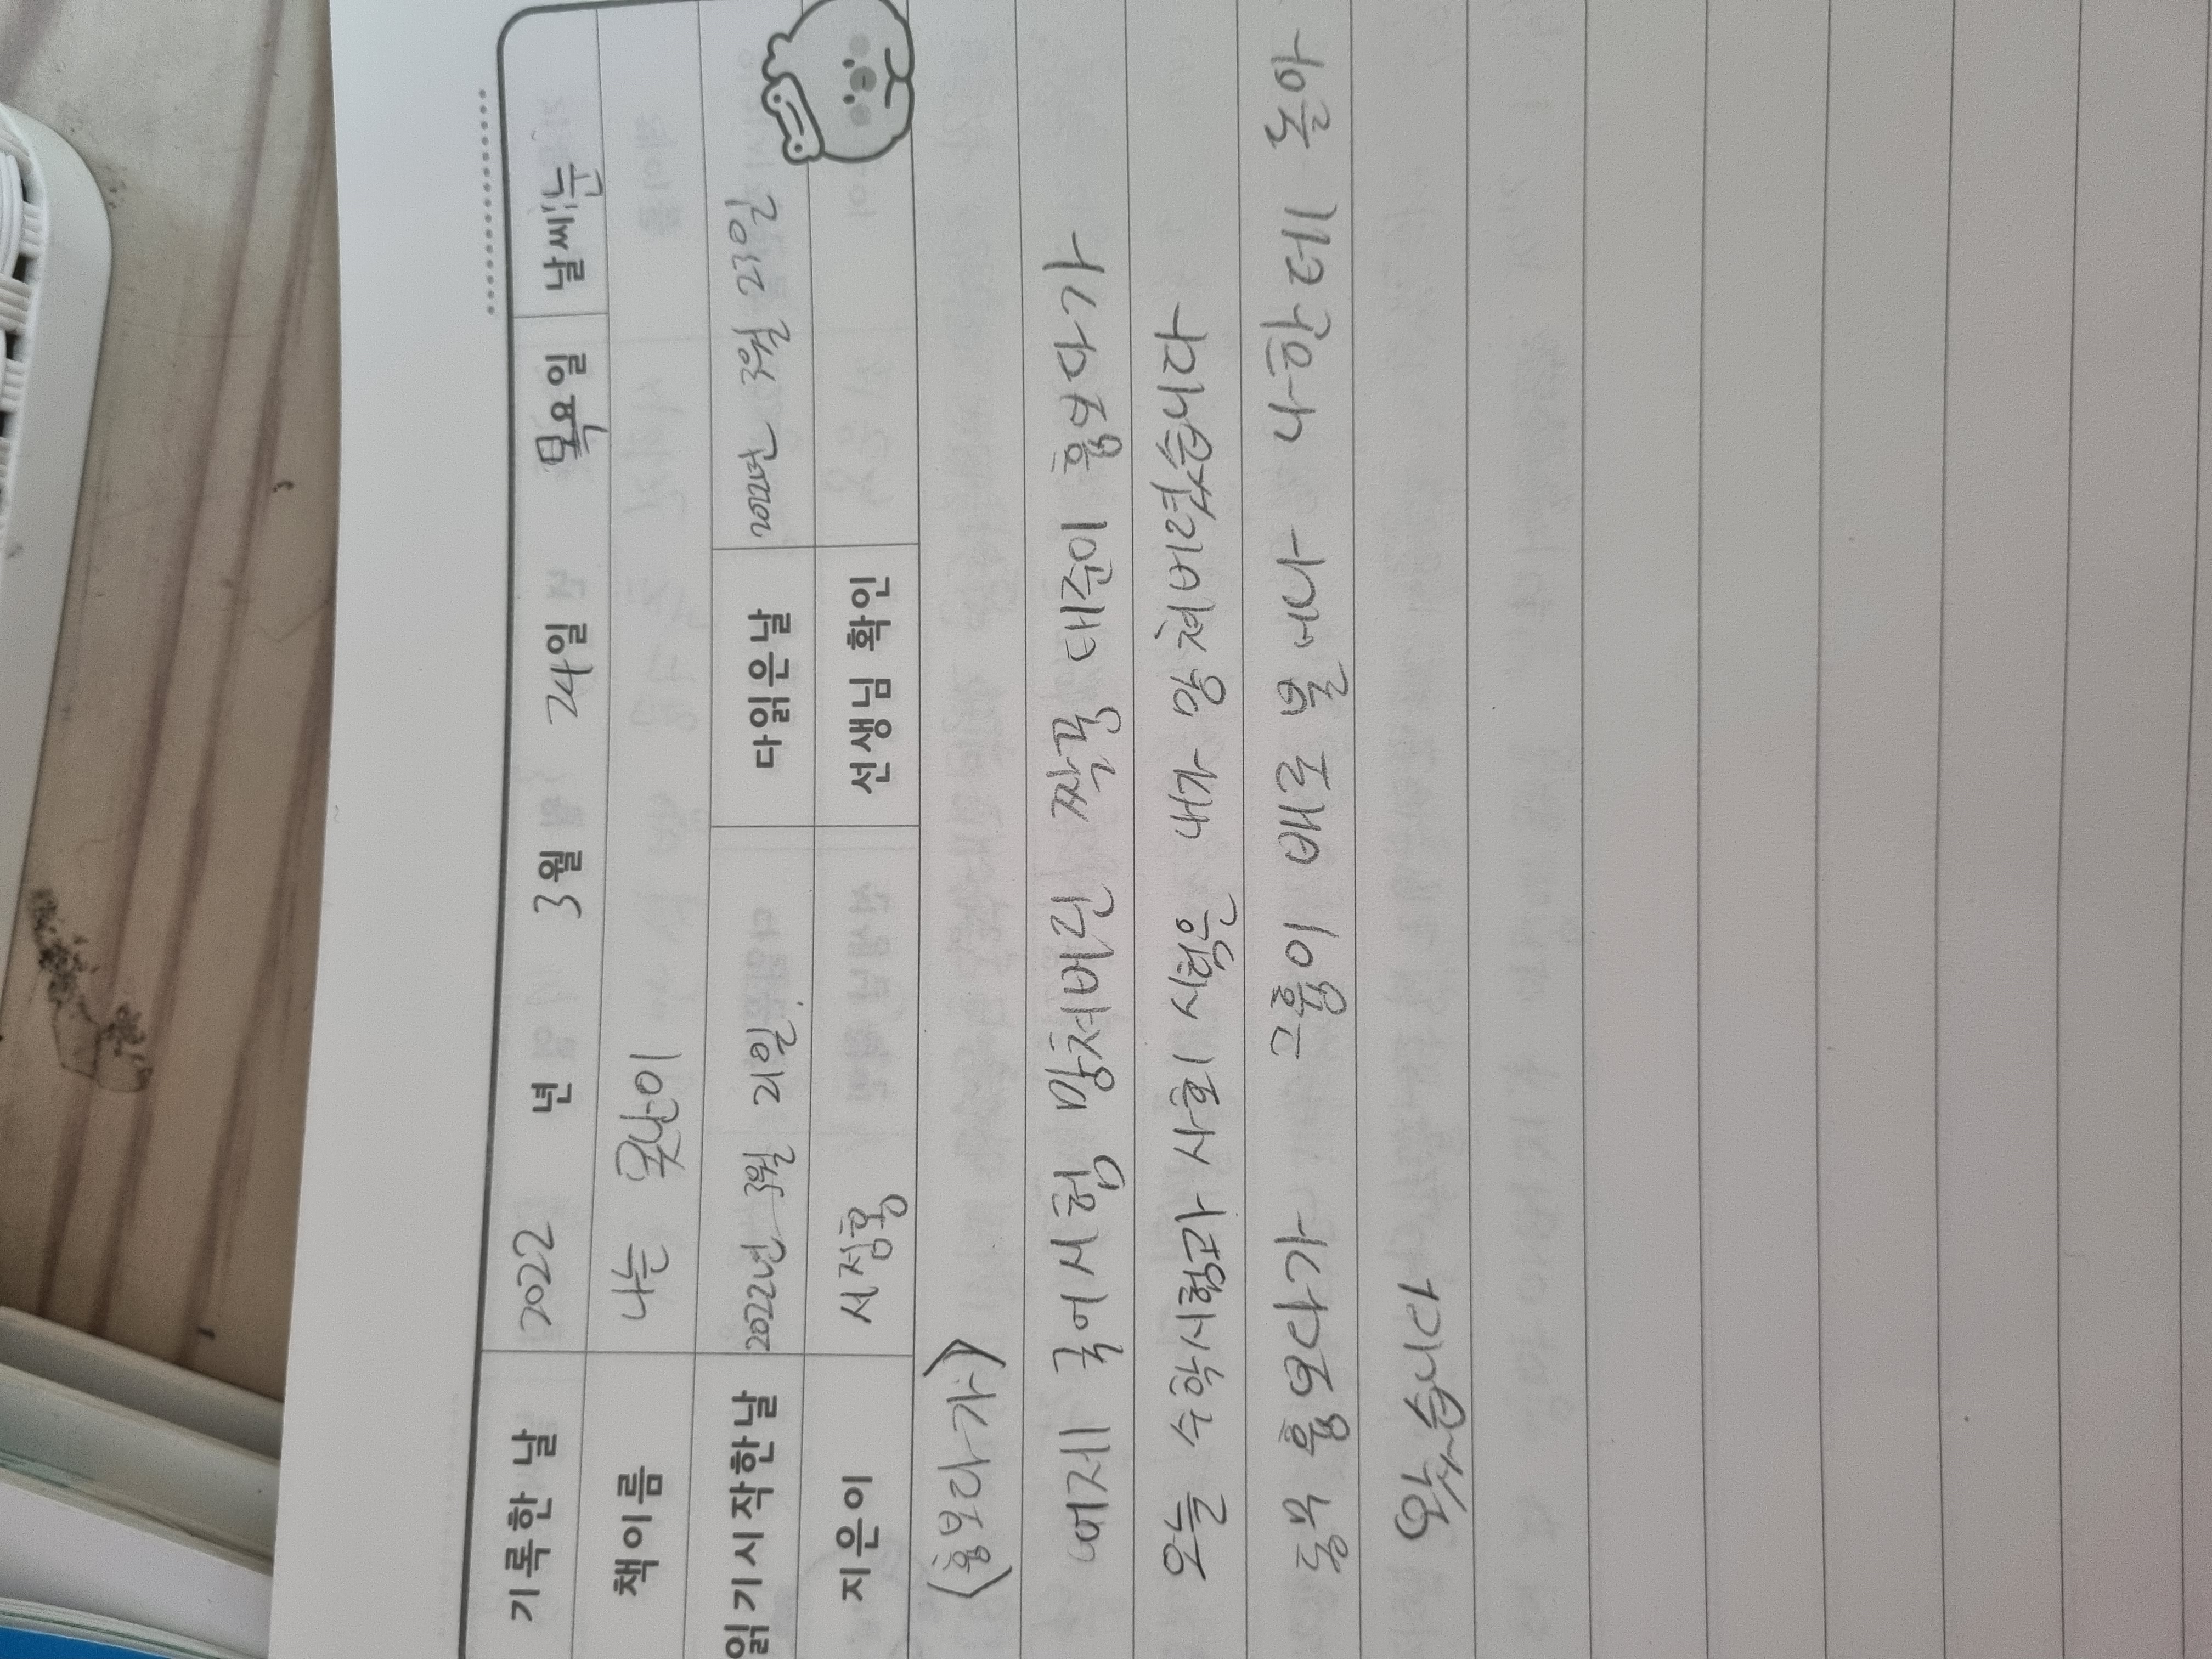 기록한 날 2022 년 3월 24일 목요일 날씨 눈
책이름 나는 못난이
읽기시작한날 2022년 3월 21일. 다읽은날 2022년 3월 23일
지은이 서정홍 선생님 확인
<흉보다가>
어제 국어시험 망쳐버린 짝꿍 대준이 흉보다가
오늘 수학시험과 사회 시험은 내가 망쳐버렸습니다
동무 흉보다가 그흉이 배로 불어나 나한테 돌아
왔습니다